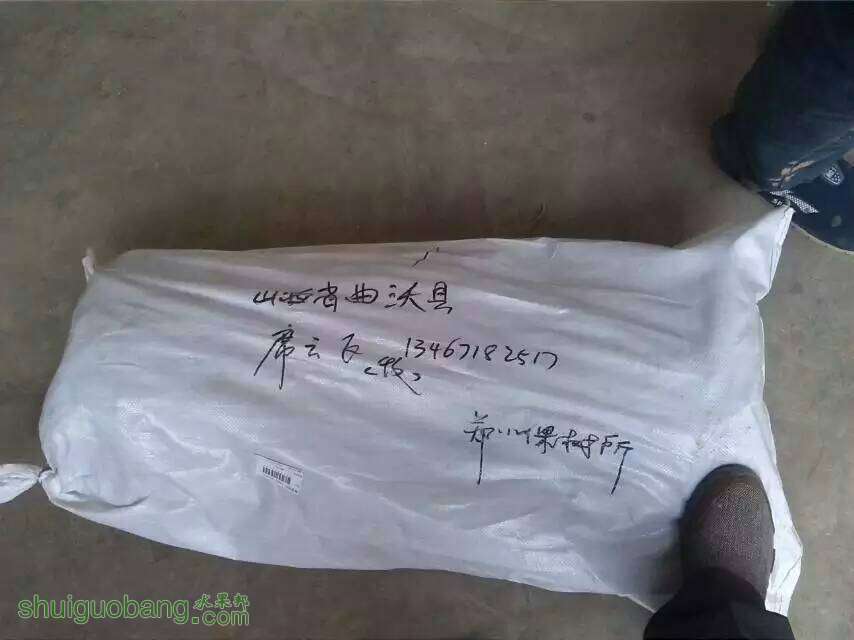 山西省曲沃县
席云飞 13467182517
(收)
郑州果树所
shuiguobang 水果邦